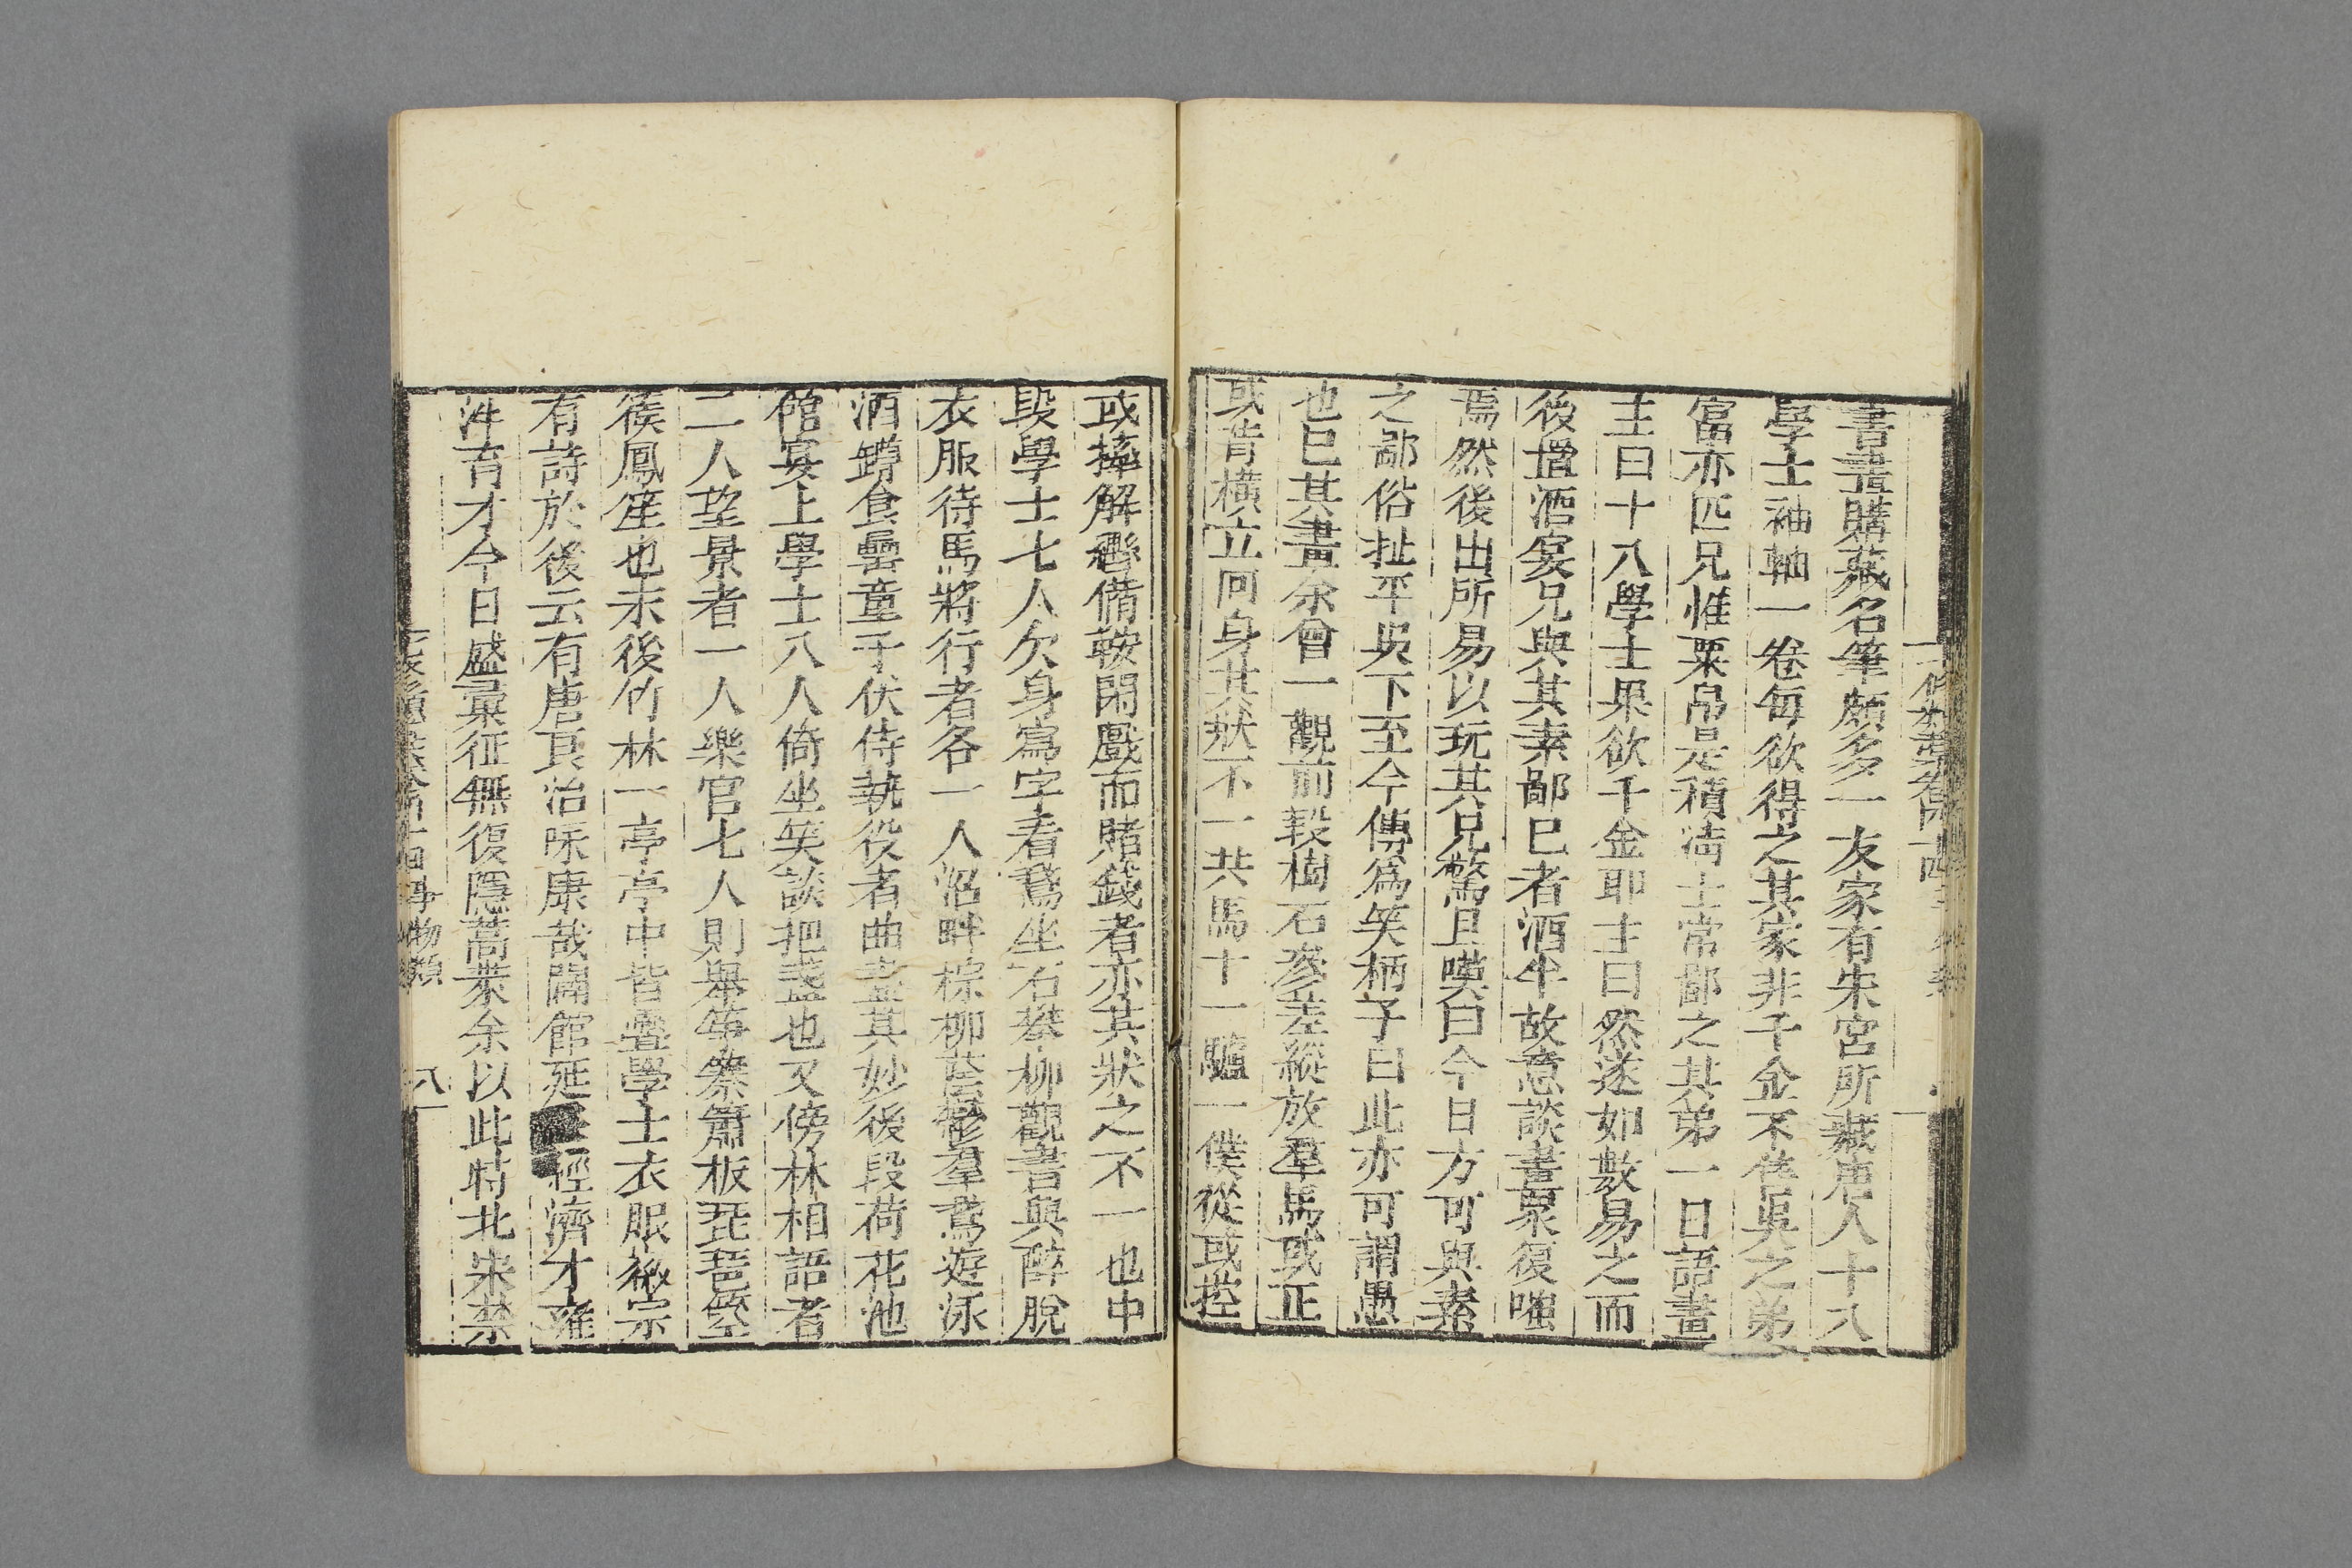 書畫購藏名筆頗多一友家有宋宮所藏唐人十八
學士袖軸一卷每欲得之其家非千金不售吳之弟
富亦匹兄惟粟帛是積清士常鄙之其弟一日語畫
主曰十八學士果欲千金耶主曰然遂如數易之而
後置酒宴兄與其素鄙已者酒半故意談畫衆復嗤
焉然後出所易以玩其兄驚且嘆曰今日方可與素
之鄙俗扯平吳下至今傳爲笑柄予曰此亦可謂愚
也巳其畫余曾一觀前叚樹石參差縱放羣馬或正
或背橫立囘身其狀不一共馬十一驢一僕從或控
或擡解轡備鞍閑戲而賭錢者亦其狀之不一也中
段學士七人欠身寫字看鵞坐石攀柳觀書與醉脫
衣服待馬將行者各一人沼畔棕柳蓊鬱羣鵞遊泳
酒罇食罍童子伏侍執役者曲盡其妙後段荷花池
館宴上學士八人倚坐笑談把盞也又傍林相語者
二人望景者一人樂官七人則舉箏蓁簫板琵琶箜
篌鳳笙也末後竹林一亭亭中皆疊學士衣服徽宗
有詩於後云有唐良治昧康哉闢館延 經濟才雍
泮育才今日盛彚征無復隱蒿萊余以此特北宋禁
七修類藁卷四十四 事物類 八